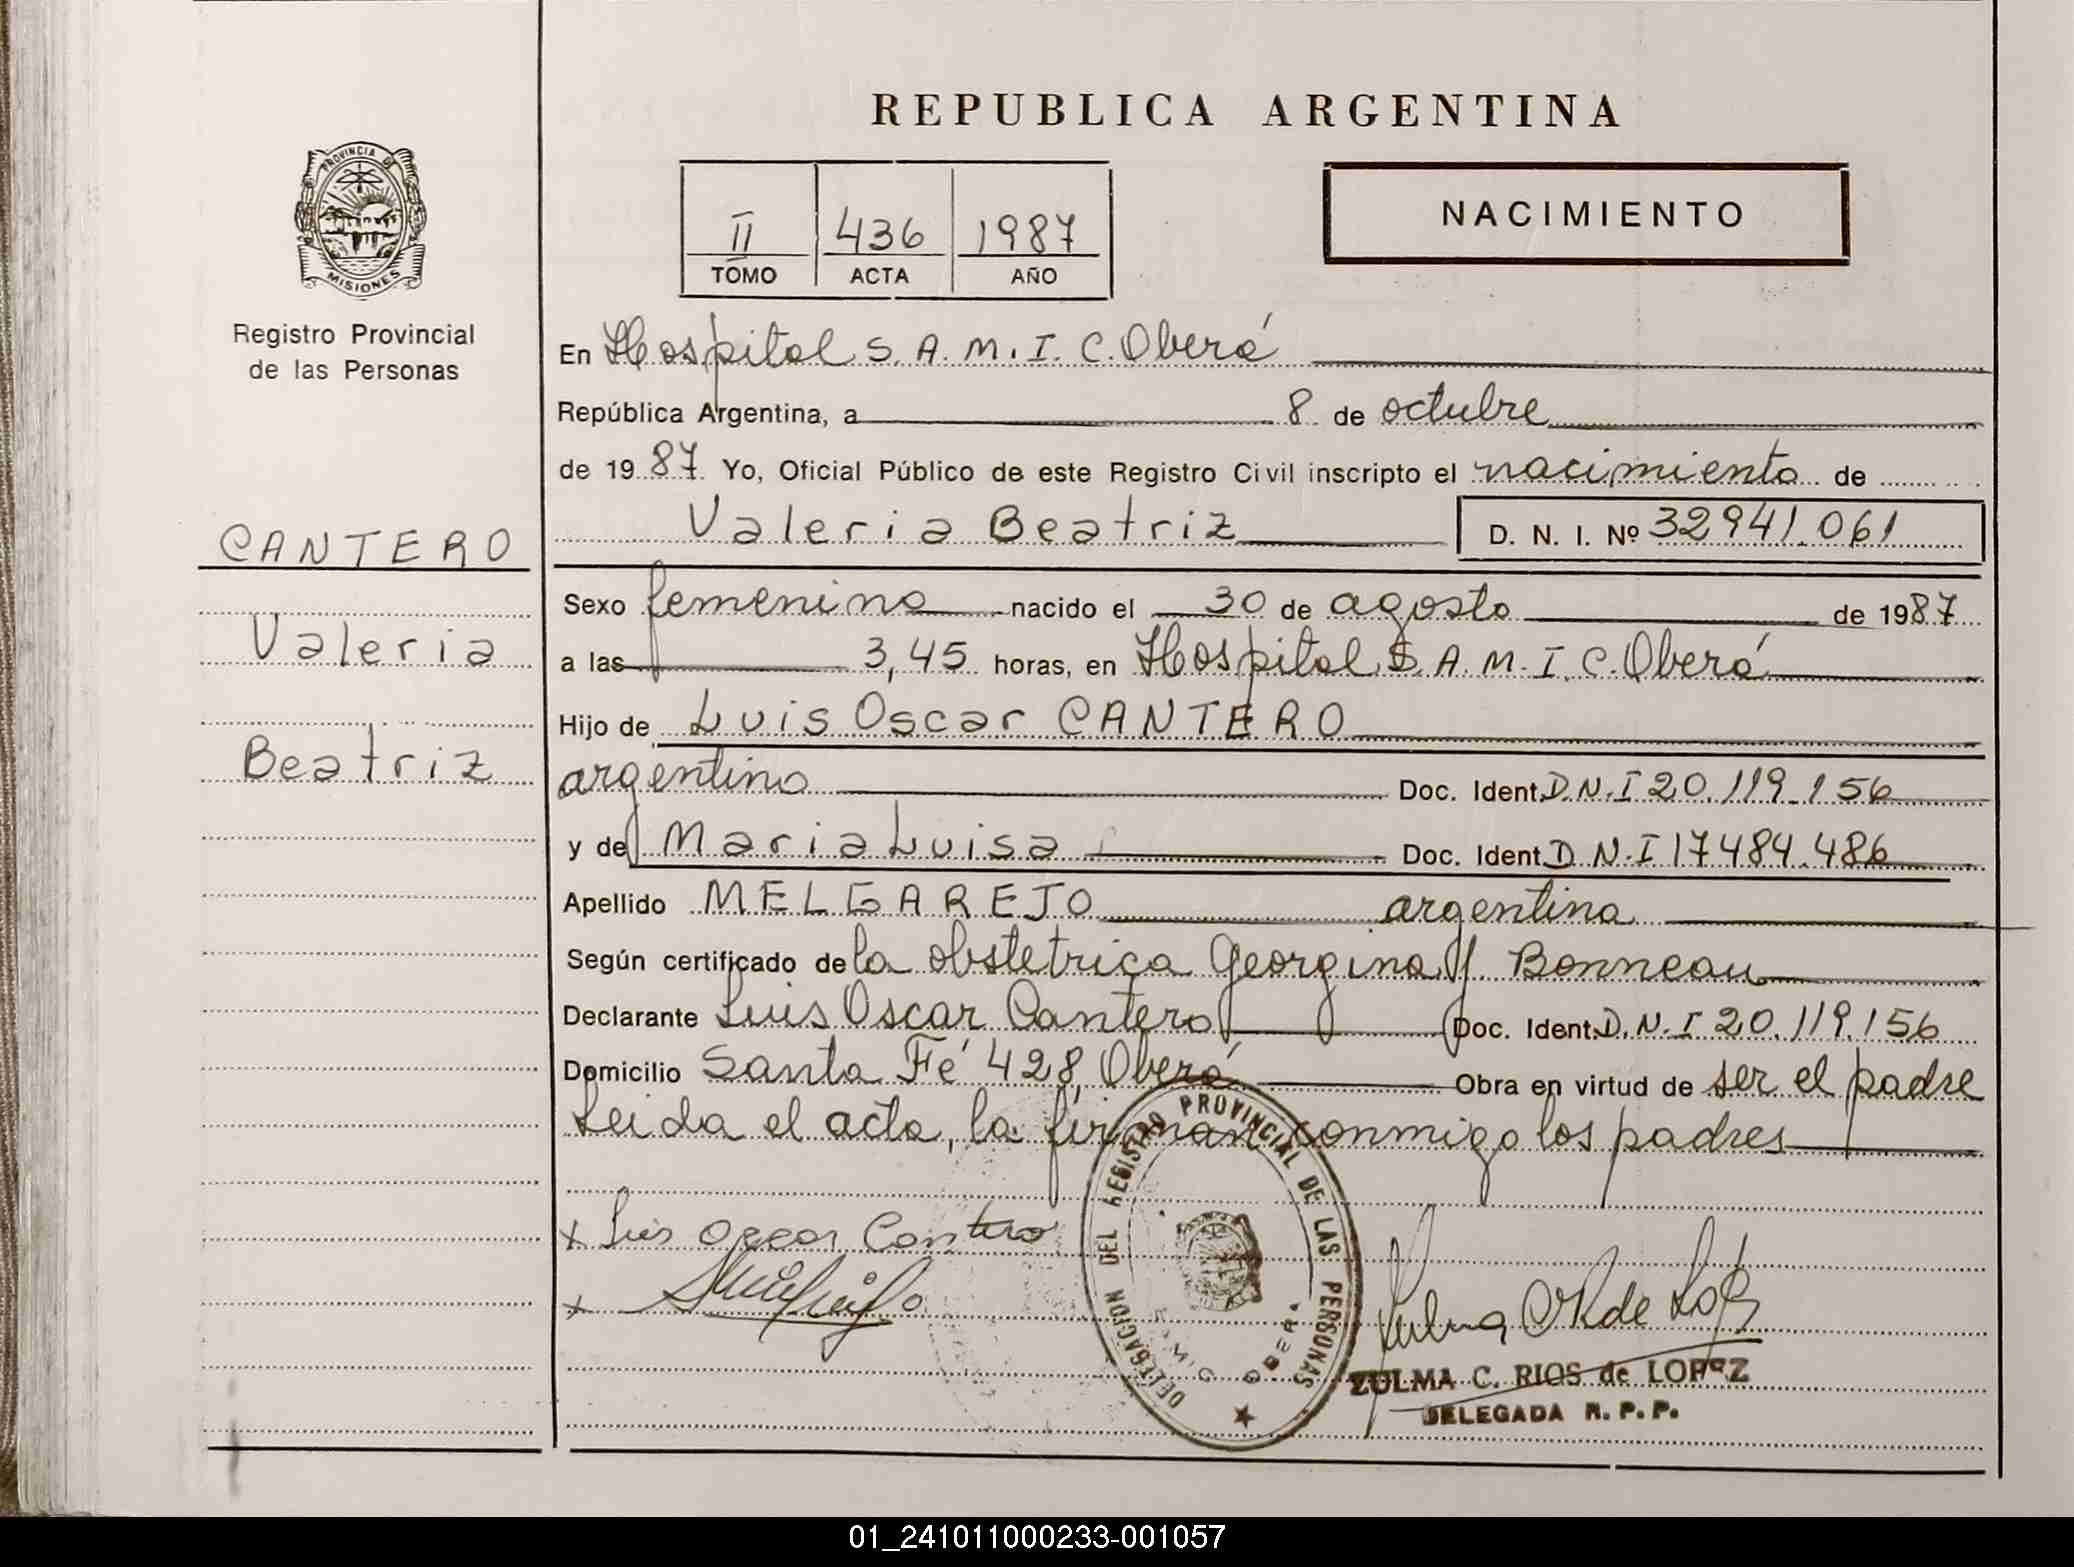 REPUBLICA ARGENTINA
PROVINCIA DE
MISIONES
Registro Provincial
de las Personas
II 436 1987
TOMO ACTA AÑO
NACIMIENTO
En Hospital S. A. M. I. C. Oberá
República Argentina, a 8 de octubre
de 1987 Yo, Oficial Público de este Registro Civil inscripto el nacimiento de
Valeria Beatriz D. N. I. Nº 32941.061
CANTERO
Valeria
Beatriz
Sexo femenino nacido el 30 de agosto de 1987
a las 3,45 horas, en Hospital S. A. M. I. C. Oberá
Hijo de Luis Oscar CANTERO
argentino Doc. Ident. D.N.I 20.119.156
y de Maria Luisa Doc. Ident. D.N.I 17484.486
Apellido MELGAREJO argentina
Según certificado de la obstetrica Georgina Bonneau
Declarante Luis Oscar Cantero Doc. Ident. D.N.I 20.119.156
Domicilio Santa Fé 428, Oberá Obra en virtud de ser el padre
Leida el acta, la firman conmigo los padres
x Luis Oscar Cantero
x
DELEGACION DEL REGISTRO PROVINCIAL DE LAS PERSONAS
ZULMA C. RIOS de LOPEZ
DELEGADA R. P. P.
01_241011000233-001057